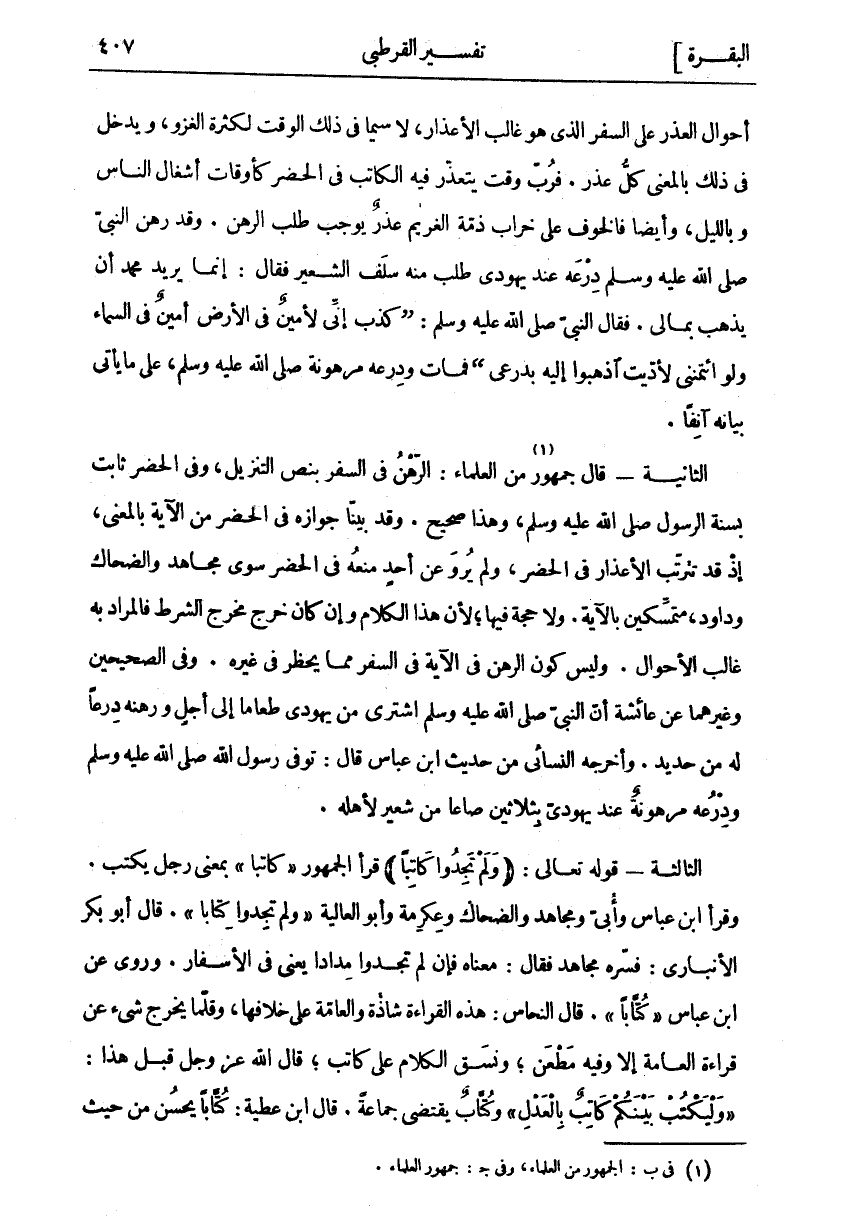 البقــرة] تفســير القرطبى ٤٠٧
أحوال العذر على السفر الذى هو غالب الأعذار، لا سيما فى ذلك الوقت لكثرة الغزو، ويدخل
فى ذلك بالمعنى كلُّ عذر . فرُبّ وقت يتعذّر فيه الكاتب فى الحضر كأوقات أشغال النــاس
وبالليل، وأيضا فالخوف على خراب ذمّة الغريم عذرٌ يوجب طلب الرهن . وقد رهن النبىّ
صلى الله عليه وســلم دِرْعَه عند يهودى طلب منه سلَف الشــعير فقال : إنمــا يريد محمد أن
يذهب بمــالى . فقال النبىّ صلى الله عليه وسلم : ”كذب إنّى لأمينٌ فى الأرض أمينٌ فى السماء
ولو ائتمننى لأدّيت آذهبوا إليه بدرعى“ فمــات ودِرعه مرهونة صلى الله عليه وسلم، على ما يأتى
بيانه آنفًا .
الثانيــة — قال جمهور(١) من العلماء : الرّهْنُ فى السفر بنص التنزيل، وفى الحضر ثابت
بسنة الرسول صلى الله عليه وسلم، وهذا صحيح . وقد بينّا جوازه فى الحضر من الآية بالمعنى،
إذْ قد تترتّب الأعذار فى الحضر، ولم يُروَ عن أحدٍ منعُه فى الحضر سوى مجاهد والضحاك
وداود، متمسِّكين بالآية . ولا حجة فيها؛ لأن هذا الكلام وإن كان خرج مخرج الشرط فالمراد به
غالب الأحوال . وليس كون الرهن فى الآية فى السفر ممــا يحظر فى غيره . وفى الصحيحين
وغيرهما عن عائشة أنّ النبىّ صلى الله عليه وسلم اشترى من يهودى طعاما إلى أجلٍ ورهنه دِرعاً
له من حديد . وأخرجه النسائى من حديث ابن عباس قال : توفى رسول الله صلى الله عليه وسلم
ودِرْعُه مرهونةٌ عند يهودىّ بثلاثين صاعا من شعير لأهله .
الثالثــة — قوله تعــالى : ﴿وَلَمْ تَجِدُوا كَاتِبًا﴾ قرأ الجمهور «كاتبا» بمعنى رجل يكتب .
وقرأ ابن عباس وأُبىّ ومجاهد والضحاك وعِكرمة وأبو العالية «ولم تجِدوا كِتابا» . قال أبو بكر
الأنبــارى : فسّره مجاهد فقال : معناه فإن لم تجــدوا مِدادا يعنى فى الأســفار . وروى عن
ابن عباس «كُتَّاباً» . قال النحاس : هذه القراءة شاذّة والعامّة على خلافها، وقلّما يخرج شىء عن
قراءة العــامة إلا وفيه مَطْعَن ؛ ونسَــق الكلام على كاتب ؛ قال الله عــز وجل قبــل هذا :
«وَلْيَكْتُبْ بَيْنَكُمْ كَاتِبٌ بِالْعَدْلِ» وكُتّابٌ يقتضى جماعةً . قال ابن عطية : كُتَّاباً يحسُن من حيث
(١) فى ب : الجمهور من العلماء، وفى جـ : جمهور العلماء .